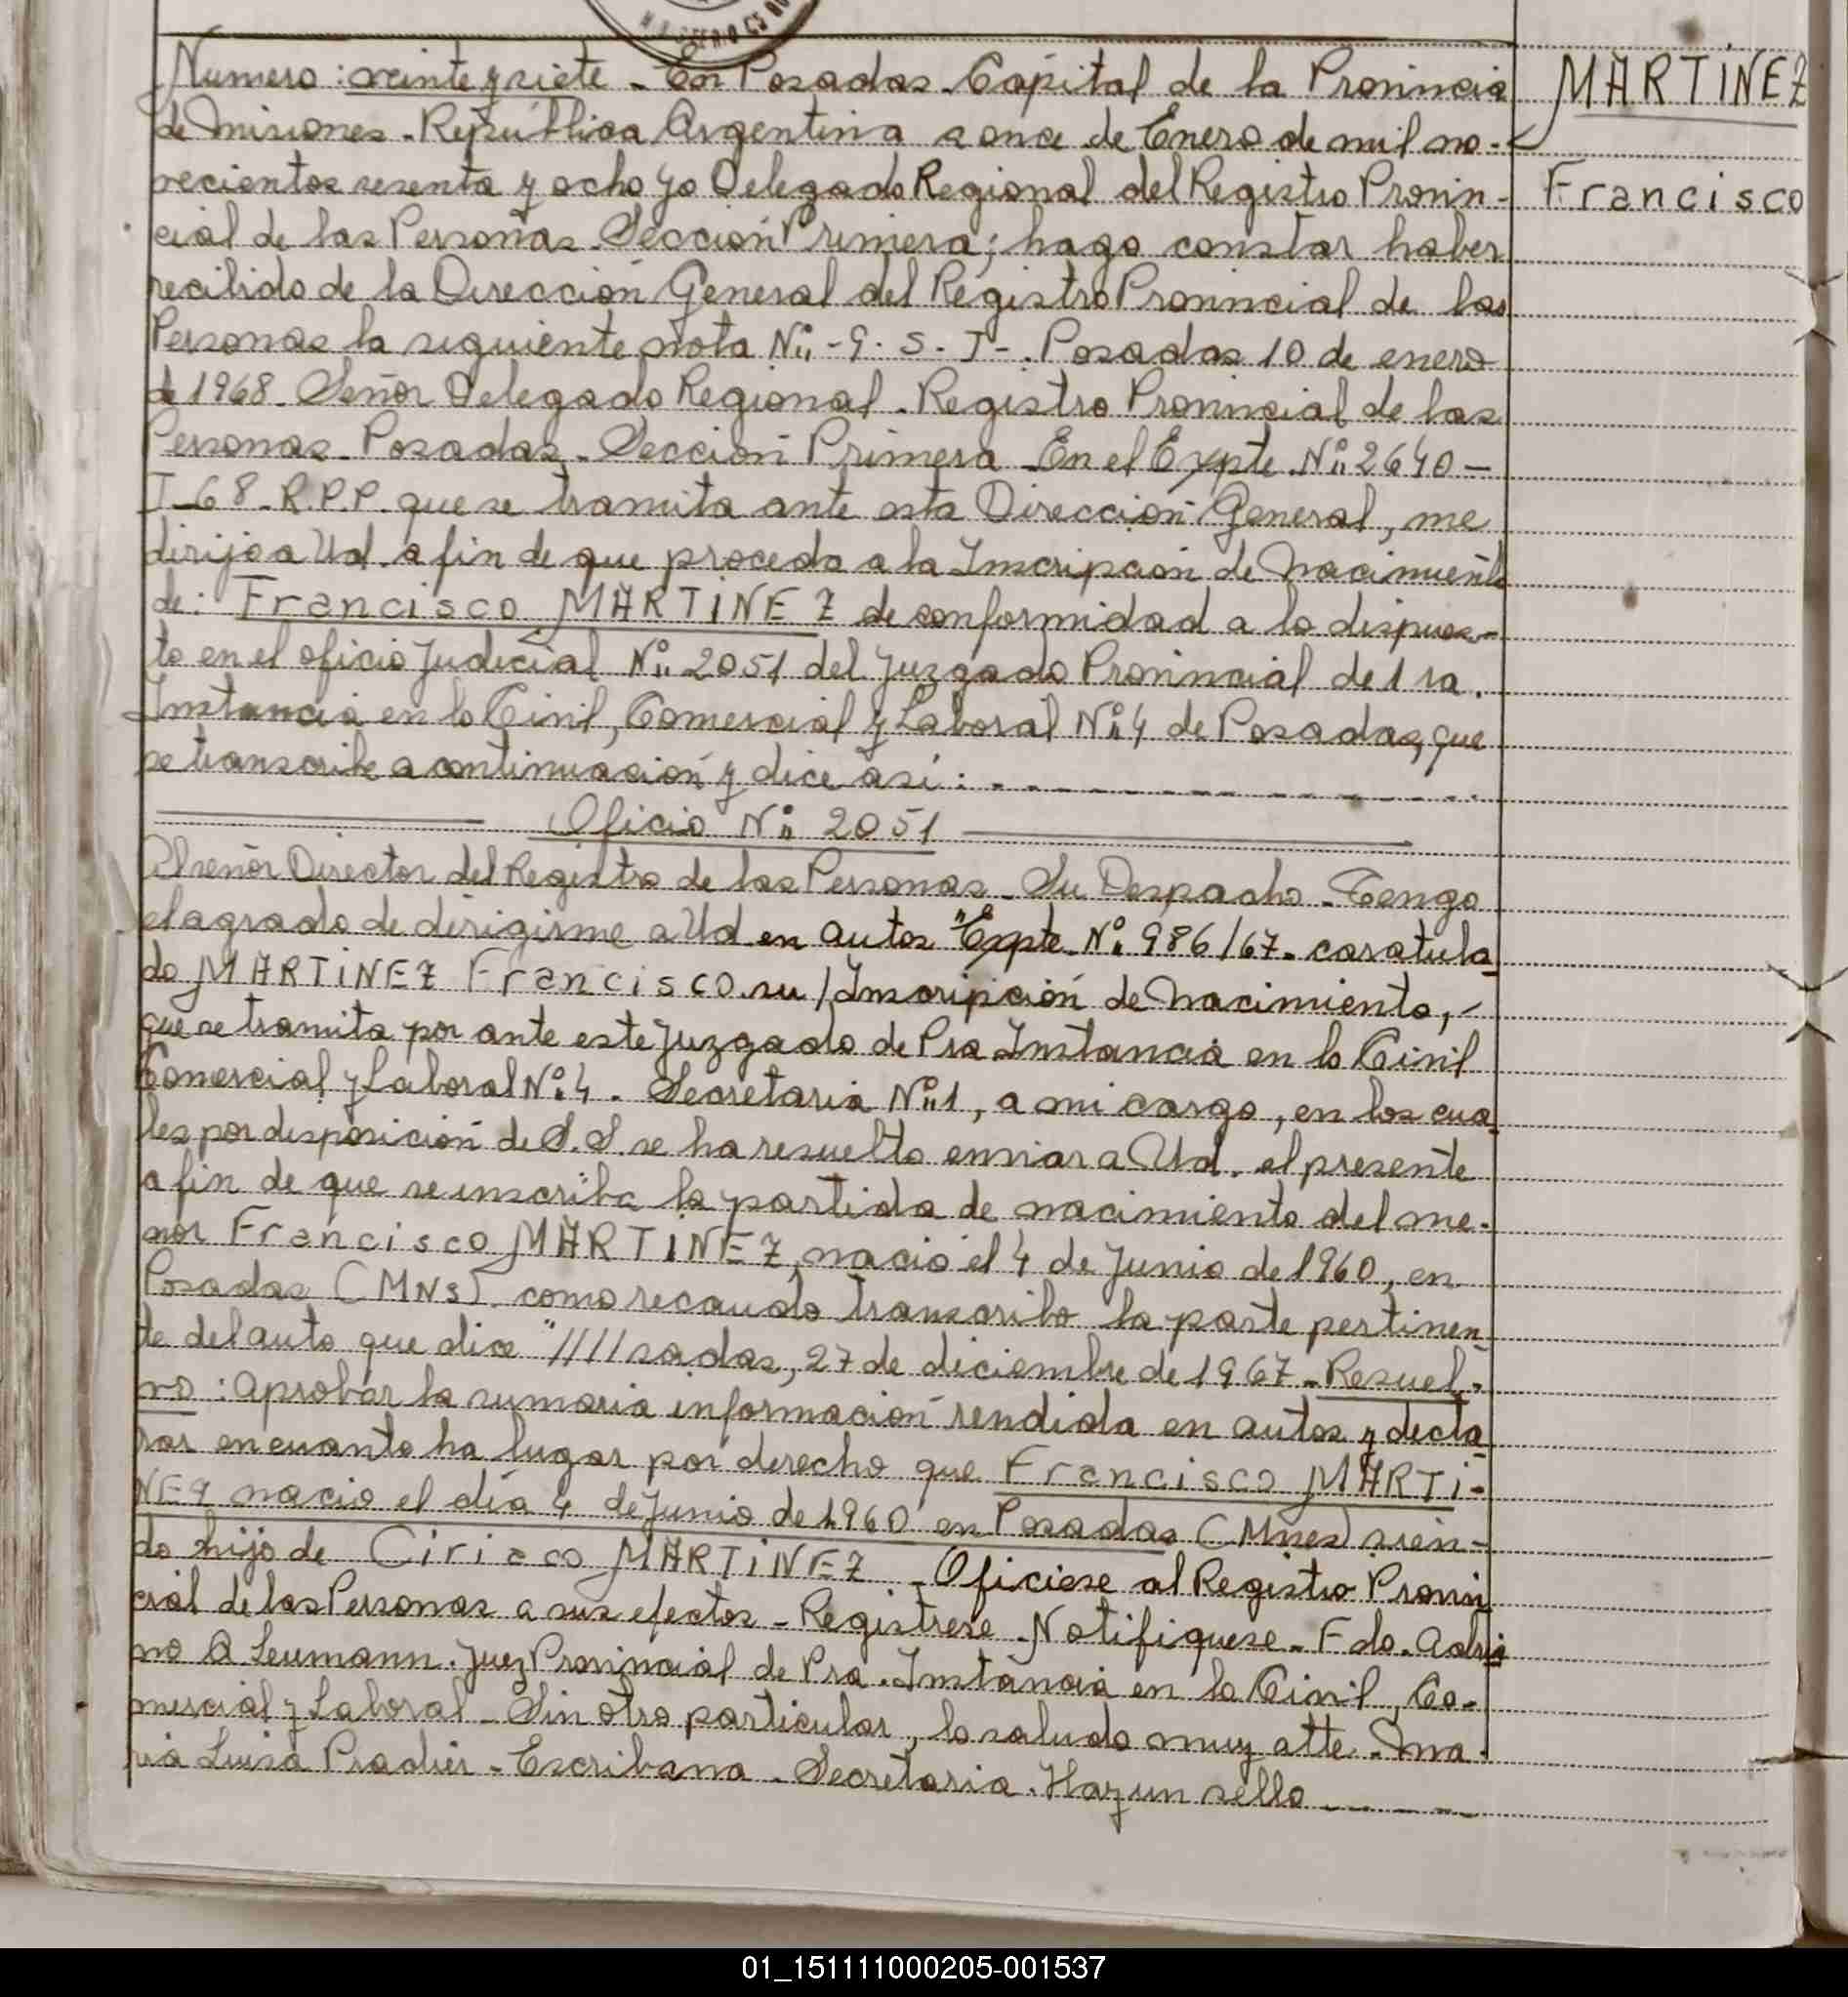 Numero: veinte y siete - En Posadas - Capital de la Provincia
de Misiones - República Argentina a once de Enero de mil no-
vecientos sesenta y ocho yo Delegado Regional del Registro Provin-
cial de las Personas Sección Primera; hago constar haber
recibido de la Dirección General del Registro Provincial de las
Personas la siguiente nota Nº - 9. S. J -. Posadas 10 de enero
de 1968 - Señor Delegado Regional - Registro Provincial de las
Personas - Posadas - Sección Primera - En el Expte Nº 2640 -
I - 68 - R.P.P. que se tramita ante esta Dirección General, me
dirijo a Ud. a fin de que proceda a la Inscripción de Nacimiento
de: Francisco MARTINEZ de conformidad a lo dispues-
to en el oficio Judicial Nº 2051 del Juzgado Provincial de 1ra.
Instancia en lo Civil, Comercial y Laboral Nº 4 de Posadas, que
se transcribe a continuación y dice así: - - - - - - - - - -
Oficio Nº 2051
Al señor Director del Registro de las Personas - Su Despacho - Tengo
el agrado de dirigirme a Ud en autos "Expte Nº 986/67 - caratula-
do MARTINEZ Francisco su/Inscripción de Nacimiento, -
que se tramita por ante este Juzgado de Pra Instancia en lo Civil
Comercial y Laboral Nº 4 - Secretaria Nº 1, a mi cargo, en los cua-
les por disposición de S.S. se ha resuelto enviar a Ud. el presente
a fin de que se inscriba la partida de nacimiento del me-
nor Francisco MARTINEZ, nació el 4 de Junio de 1960, en
Posadas (MNS). como recaudo transcribo la parte pertinen-
te del auto que dice "////sadas, 27 de diciembre de 1967 - Resuel-
vo: aprobar la sumaria información rendida en autos y decla-
rar en cuanto ha lugar por derecho que Francisco MARTI-
NEZ nacio el día 4 de Junio de 1960 en Posadas (Mnes) sien-
do hijo de Ciriaco MARTINEZ - Oficiese al Registro Provin
cial de las Personas a sus efectos - Registrese - Notifiquese - Fdo. Adria
no A Leumann. Juez Provincial de Pra. Instancia en lo Civil, Co-
mercial y Laboral - Sin otro particular, lo saludo muy atte. Ma-
ria Luisa Pradier - Escribana - Secretaria. Hay un sello - - - -
MARTINEZ
Francisco
01_151111000205-001537